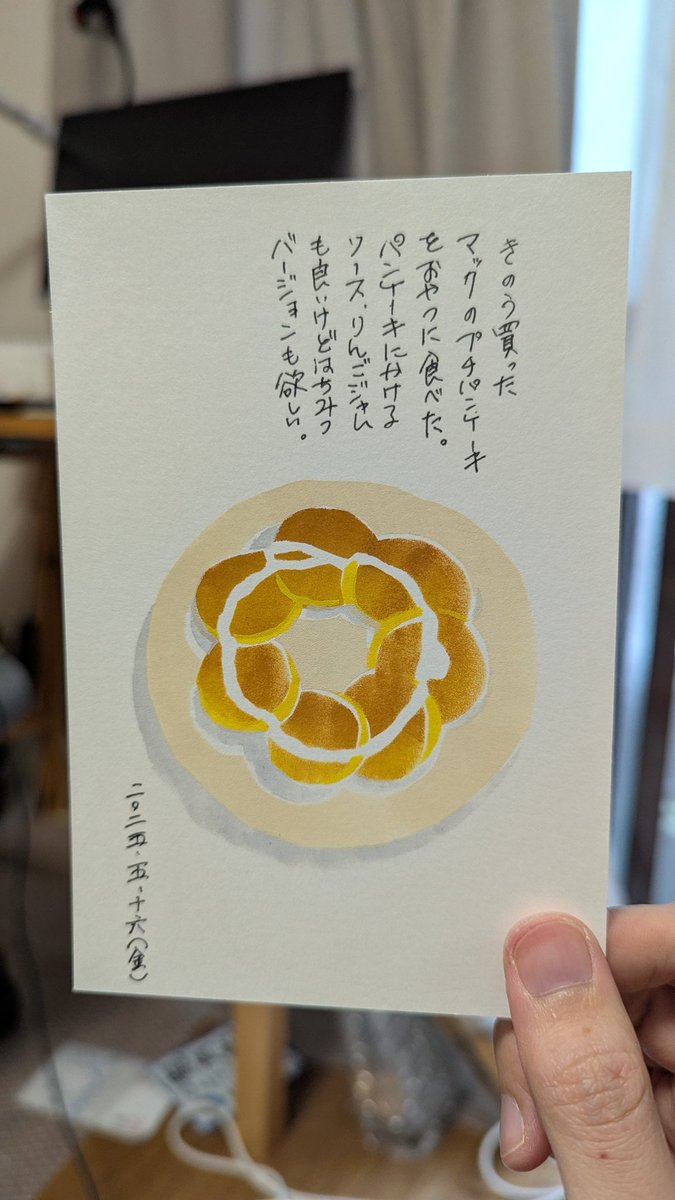 きのう買った
マックのプチパンケーキ
をおやつに食べた。
パンケーキにかける
ソース、りんごジャム
も良いけどはちみつ
バージョンも欲しい。
二〇二五・五・十六(金)